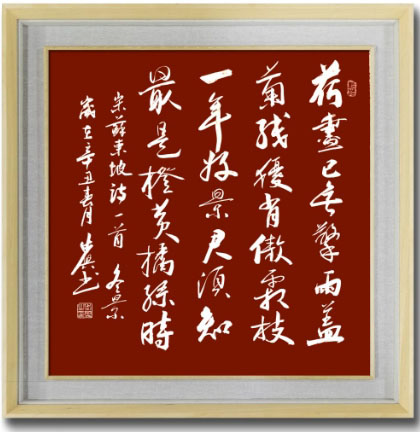 荷盡已無擎雨蓋
菊殘猶有傲霜枝
一年好景君須知
最是橙黄橘緑時
宋蘇東坡詩一首 冬景
歲在辛丑春月 书